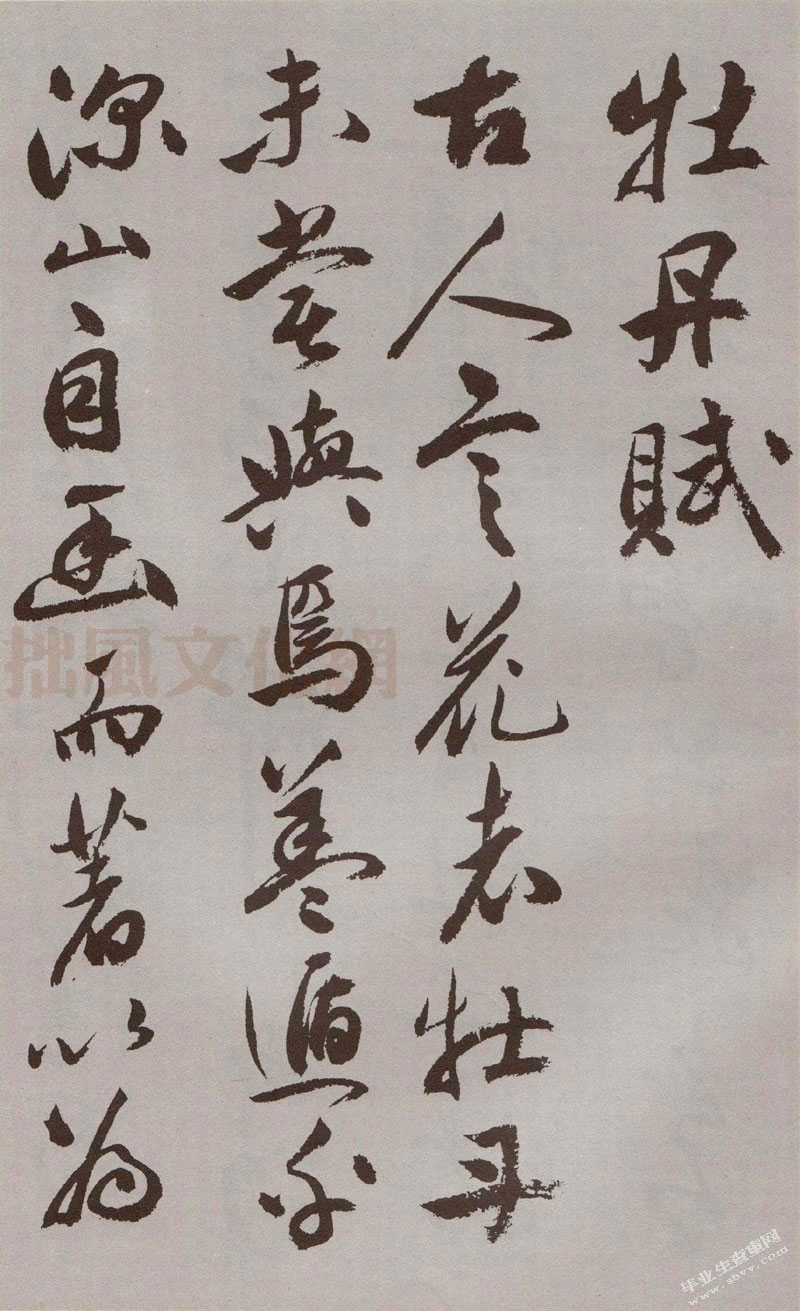 牡丹賦
古人言花者牡丹
未嘗與焉蓋遁於
深山自幽而著以為
拙風文化網
毕业生查重网
www.sbvv.com